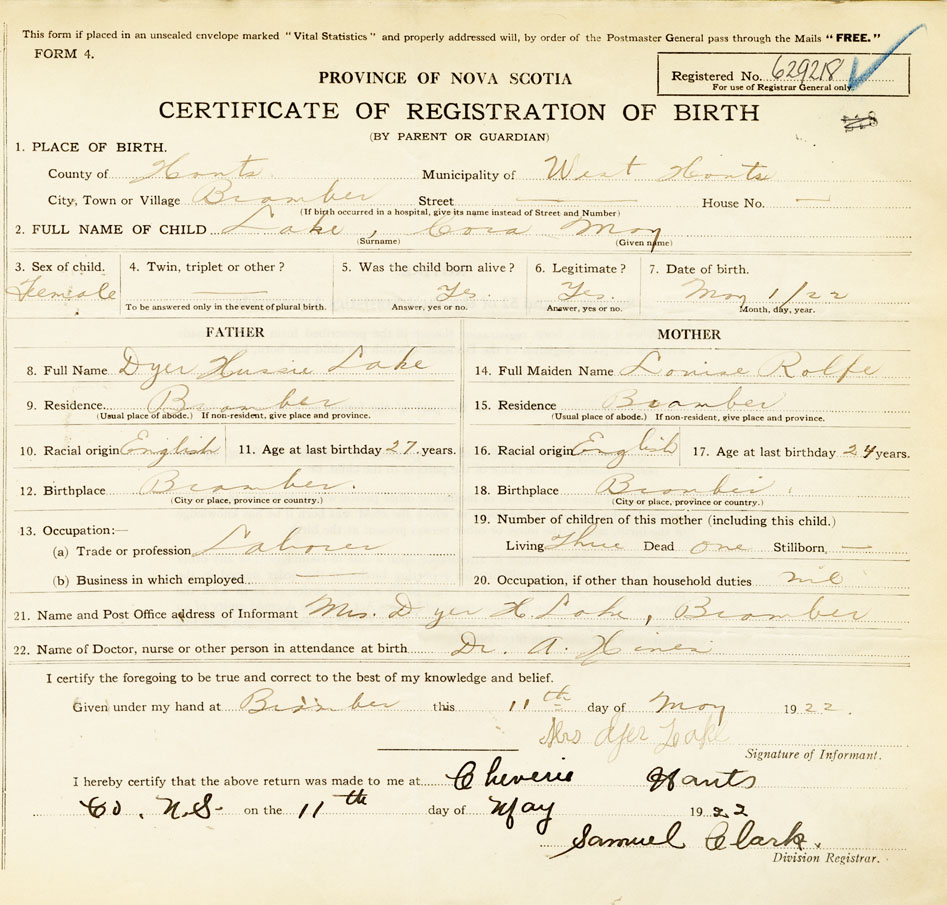 This form if placed in an unsealed envelope marked "Vital Statistics" and properly addressed will, by order of the Postmaster General pass through the Mails "FREE."
FORM 4.
PROVINCE OF NOVA SCOTIA
Registered No. 629218
For use of Registrar General only
CERTIFICATE OF REGISTRATION OF BIRTH
(BY PARENT OR GUARDIAN)
1. PLACE OF BIRTH.
County of Hants Municipality of West Hants
City, Town or Village Bramber Street — House No. —
(If birth occurred in a hospital, give its name instead of Street and Number)
2. FULL NAME OF CHILD Lake, Cora May
(Surname) (Given name)
3. Sex of child. 4. Twin, triplet or other? 5. Was the child born alive? 6. Legitimate? 7. Date of birth.
Female — Yes. Yes. May 1/22
To be answered only in the event of plural birth. Answer, yes or no. Answer, yes or no. Month, day, year.
FATHER
8. Full Name Dyer Hussie Lake
9. Residence Bramber
(Usual place of abode.) If non-resident, give place and province.
10. Racial origin English 11. Age at last birthday 27. years.
12. Birthplace Bramber.
(City or place, province or country.)
13. Occupation:—
(a) Trade or profession Laborer
(b) Business in which employed —
MOTHER
14. Full Maiden Name Louise Rolfe
15. Residence Bramber
(Usual place of abode.) If non-resident, give place and province.
16. Racial origin English 17. Age at last birthday 24 years.
18. Birthplace Bramber.
(City or place, province or country.)
19. Number of children of this mother (including this child.)
Living Three Dead One Stillborn, —
20. Occupation, if other than household duties nil
21. Name and Post Office address of Informant Mrs. Dyer H. Lake, Bramber
22. Name of Doctor, nurse or other person in attendance at birth Dr. A. Hines
I certify the foregoing to be true and correct to the best of my knowledge and belief.
Given under my hand at Bramber this 11th day of May 1922.
Mrs Dyer Lake
Signature of Informant.
I hereby certify that the above return was made to me at Cheverie Hants
Co. N.S. on the 11th day of May 1922
Samuel Clark.
Division Registrar.